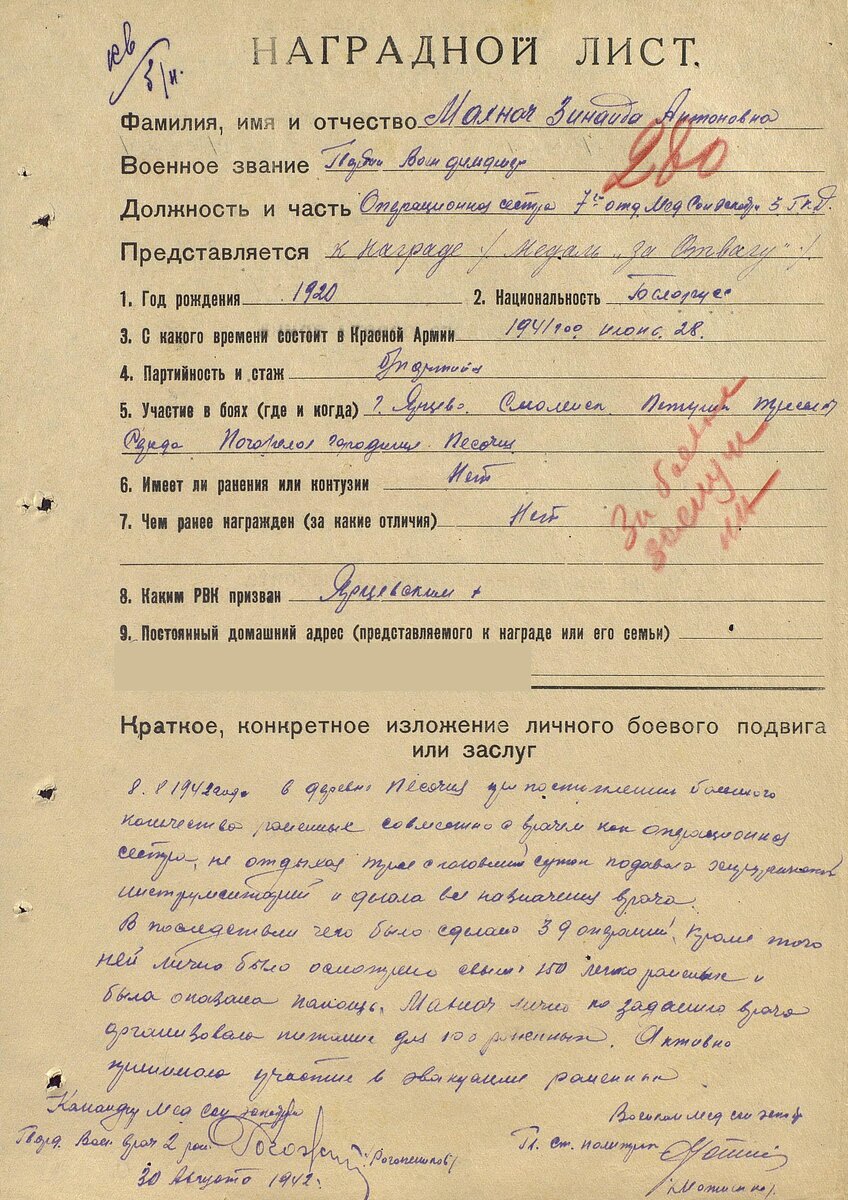 кв
3/н.
НАГРАДНОЙ ЛИСТ.
Фамилия, имя и отчество Зинаида Антоновна
280
Военное звание
Должность и часть Операционная сестра 7го отд. Мед
Представляется к награде / Медаль „За Отвагу“ /.
1. Год рождения 1920 2. Национальность
3. С какого времени состоит в Красной Армии 1941 год 28.
4. Партийность и стаж
5. Участие в боях (где и когда) г. Ярцево. Смоленск.
Погорелое городище Песочня
За боевые
заслуги
6. Имеет ли ранения или контузии Нет
7. Чем ранее награжден (за какие отличия) Нет
8. Каким РВК призван Ярцевским
9. Постоянный домашний адрес (представляемого к награде или его семьи)
Краткое, конкретное изложение личного боевого подвига
или заслуг
8.8 1942 года в деревне Песочня при поступлении большого
количества раненных совместно с врачем как операционная
сестра, не отдыхая трое с половиной суток подавала хирургический
инструментарий и делала все назначения врача.
В последствии чего было сделано 39 операций. Кроме того
ей лично было осмотрено свыше 150 легко раненых и
была оказана помощь. лично по заданию врача
организовала питание для 100 раненных. Активно
принимала участие в эвакуации раненных
Командир мед сан
Гвард. Воен врач 2 ранг
30 Августа 1942г.
Военком мед сан
Гв. ст. политрук